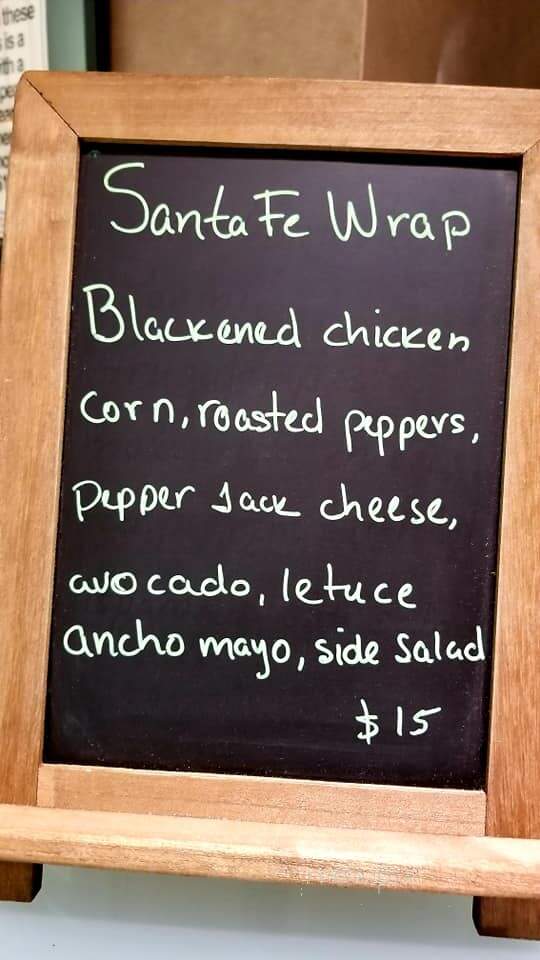 these
is a
Santa Fe Wrap
Blackened chicken
corn, roasted peppers,
pepper Jack cheese,
avocado, letuce
ancho mayo, side salad
$15